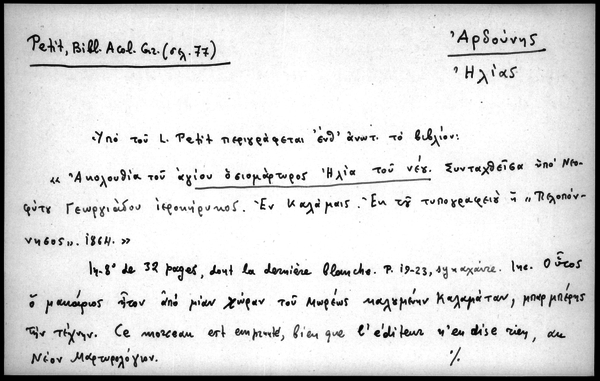 Petit, Bibl. Acol. Gr. (σελ. 77)
Ἀρδούνης
Ἠλίας
Ὑπὸ τοῦ L. Petit περιγράφεται ἐνθ' ἀνωτ. τὸ βιβλίον:
« Ἀκολουθία τοῦ ἁγίου ὁσιομάρτυρος Ἠλία τοῦ νέου. Συνταχθεῖσα ὑπὸ Νεο-
φύτου Γεωργιάδου ἱεροκήρυκος. Ἐν Καλάμαις. Ἐκ τοῦ τυπογραφείου ἡ "Πελοπόν-
νησος". 1864. »
In-8° de 32 pages, dont la dernière blanche. P. 19-23, synaxaire. Inc. Οὗτος
ὁ μακάριος ἦτον ἀπὸ μίαν χώραν τοῦ Μωρέως καλουμένην Καλαμάταν, μπαρμπέρης
τὴν τέχνην. Ce morceau est emprunté, bien que l'éditeur n'en dise rien, au
Νέον Μαρτυρολόγιον.
%